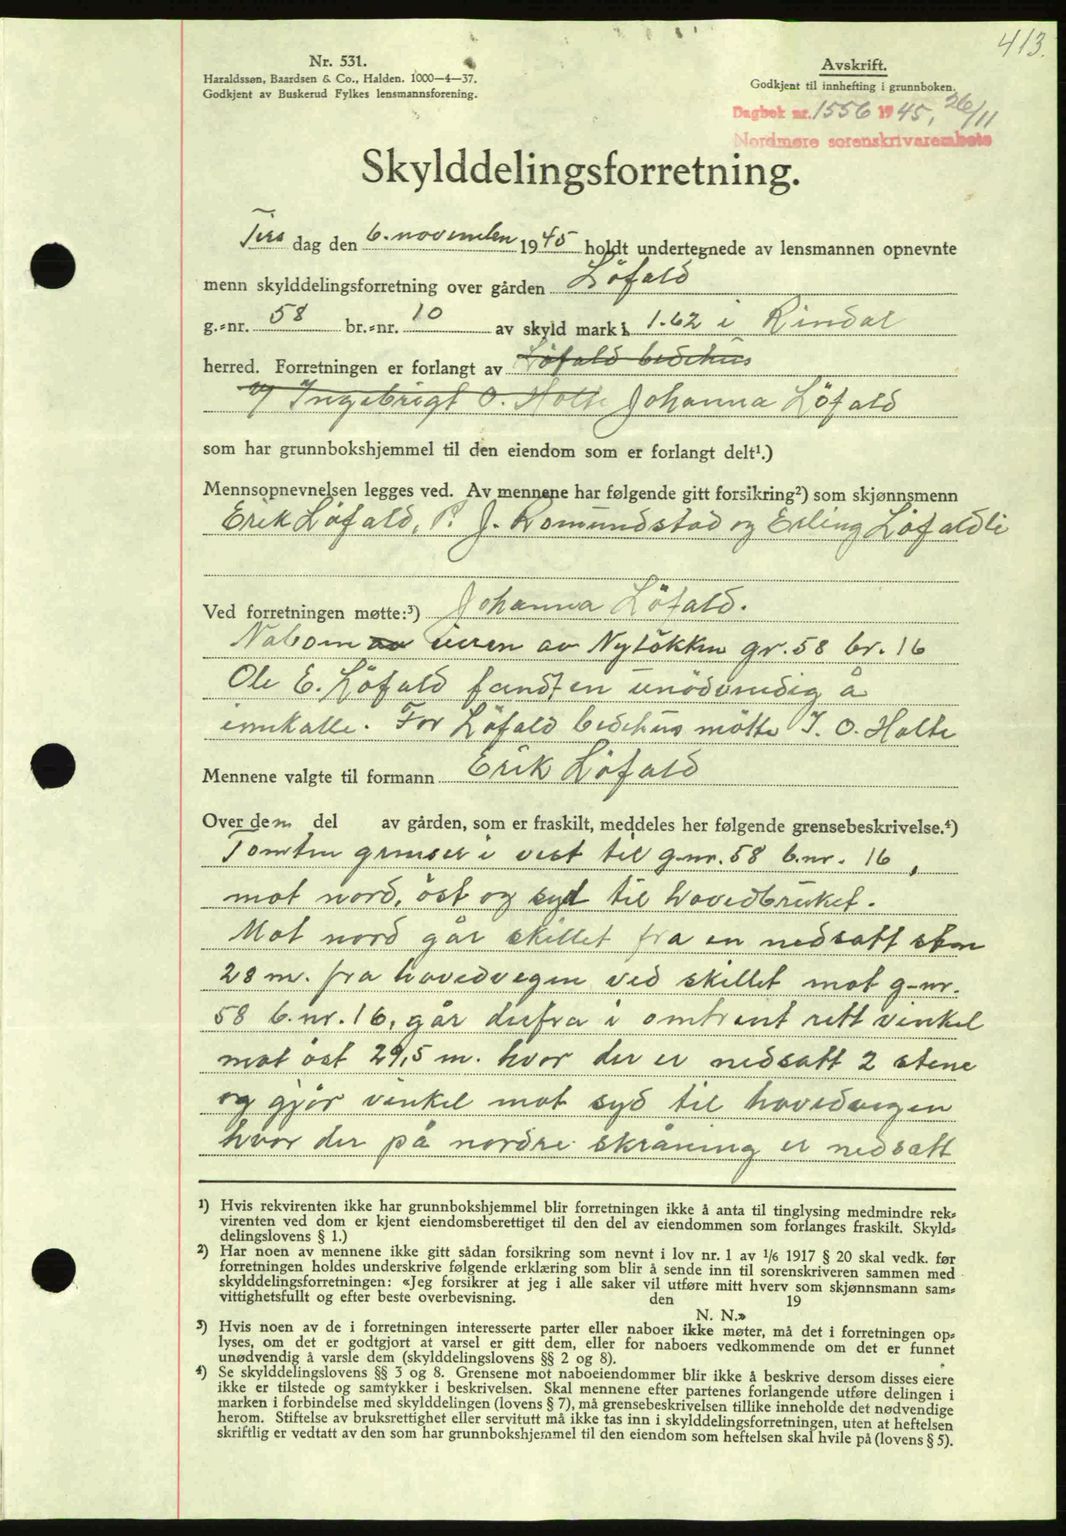 413.
Nr. 531.
Haraldssøn, Baardsen & Co., Halden. 1000—4—37.
Godkjent av Buskerud Fylkes lensmannsforening.
Avskrift.
Godkjent til innhefting i grunnboken.
Dagbok nr. 1556 1945, 26/11
Nordmøre sorenskrivarembete
Skylddelingsforretning.
Tirs dag den 6. november 1945 holdt undertegnede av lensmannen opnevnte
menn skylddelingsforretning over gården Löfald
g.-nr. 58 br.-nr. 10 av skyld mark 1.62 i Rindal
herred. Forretningen er forlangt av Löfald bedehus
v/ Ingebrigt O. Holte Johanna Löfald
som har grunnbokshjemmel til den eiendom som er forlangt delt¹.)
Mennsopnevnelsen legges ved. Av mennene har følgende gitt forsikring²) som skjønnsmenn
Erik Löfald, P. J. Romundstad og Erling Löfaldli
Ved forretningen møtte:³) Johanna Löfald.
Naboen eieren av Nylökken gr. 58 br. 16
Ole E. Löfald fandt en unödvendig å
innkalle. For Löfald bedehus mötte I. O. Holte
Mennene valgte til formann Erik Löfald
Over den del av gården, som er fraskilt, meddeles her følgende grensebeskrivelse.⁴)
Tomten grenser i vest til g.nr. 58 b.nr. 16,
mot nord, öst og syd til hovedbruket.
Mot nord går skillet fra en nedsatt sten
28 m. fra hovedvegen ved skillet mot g-nr.
58 b.nr. 16, går derfra i omtrent rett vinkel
mot öst 29,5 m. hvor der er nedsatt 2 stene
og gjör vinkel mot syd til hovedvegen
hvor der på nordre skråning er nedsatt
¹) Hvis rekvirenten ikke har grunnbokshjemmel blir forretningen ikke å anta til tinglysing medmindre rek-
virenten ved dom er kjent eiendomsberettiget til den del av eiendommen som forlanges fraskilt. Skyld-
delingslovens § 1.)
²) Har noen av mennene ikke gitt sådan forsikring som nevnt i lov nr. 1 av 1/6 1917 § 20 skal vedk. før
forretningen holdes underskrive følgende erklæring som blir å sende inn til sorenskriveren sammen med
skylddelingsforretningen: «Jeg forsikrer at jeg i alle saker vil utføre mitt hverv som skjønnsmann sam-
vittighetsfullt og efter beste overbevisning. den 19
N. N.»
³) Hvis noen av de i forretningen interesserte parter eller naboer ikke møter, må det i forretningen op-
lyses, om det er godtgjort at varsel er gitt dem, eller for naboers vedkommende om det er funnet
unødvendig å varsle dem (skylddelingslovens §§ 2 og 8).
⁴) Se skylddelingslovens §§ 3 og 8. Grensene mot naboeiendommer blir ikke å beskrive dersom disses eiere
ikke er tilstede og samtykker i beskrivelsen. Skal mennene efter partenes forlangende utføre delingen i
marken i forbindelse med skylddelingen (lovens § 7), må grensebeskrivelsen tillike inneholde det nødvendige
herom. Stiftelse av bruksrettighet eller servitutt må ikke tas inn i skylddelingsforretningen, uten at heftelsen
skriftlig er vedtatt av den som har grunnbokshjemmel til den eiendom som heftelsen skal hvile på (lovens § 5).